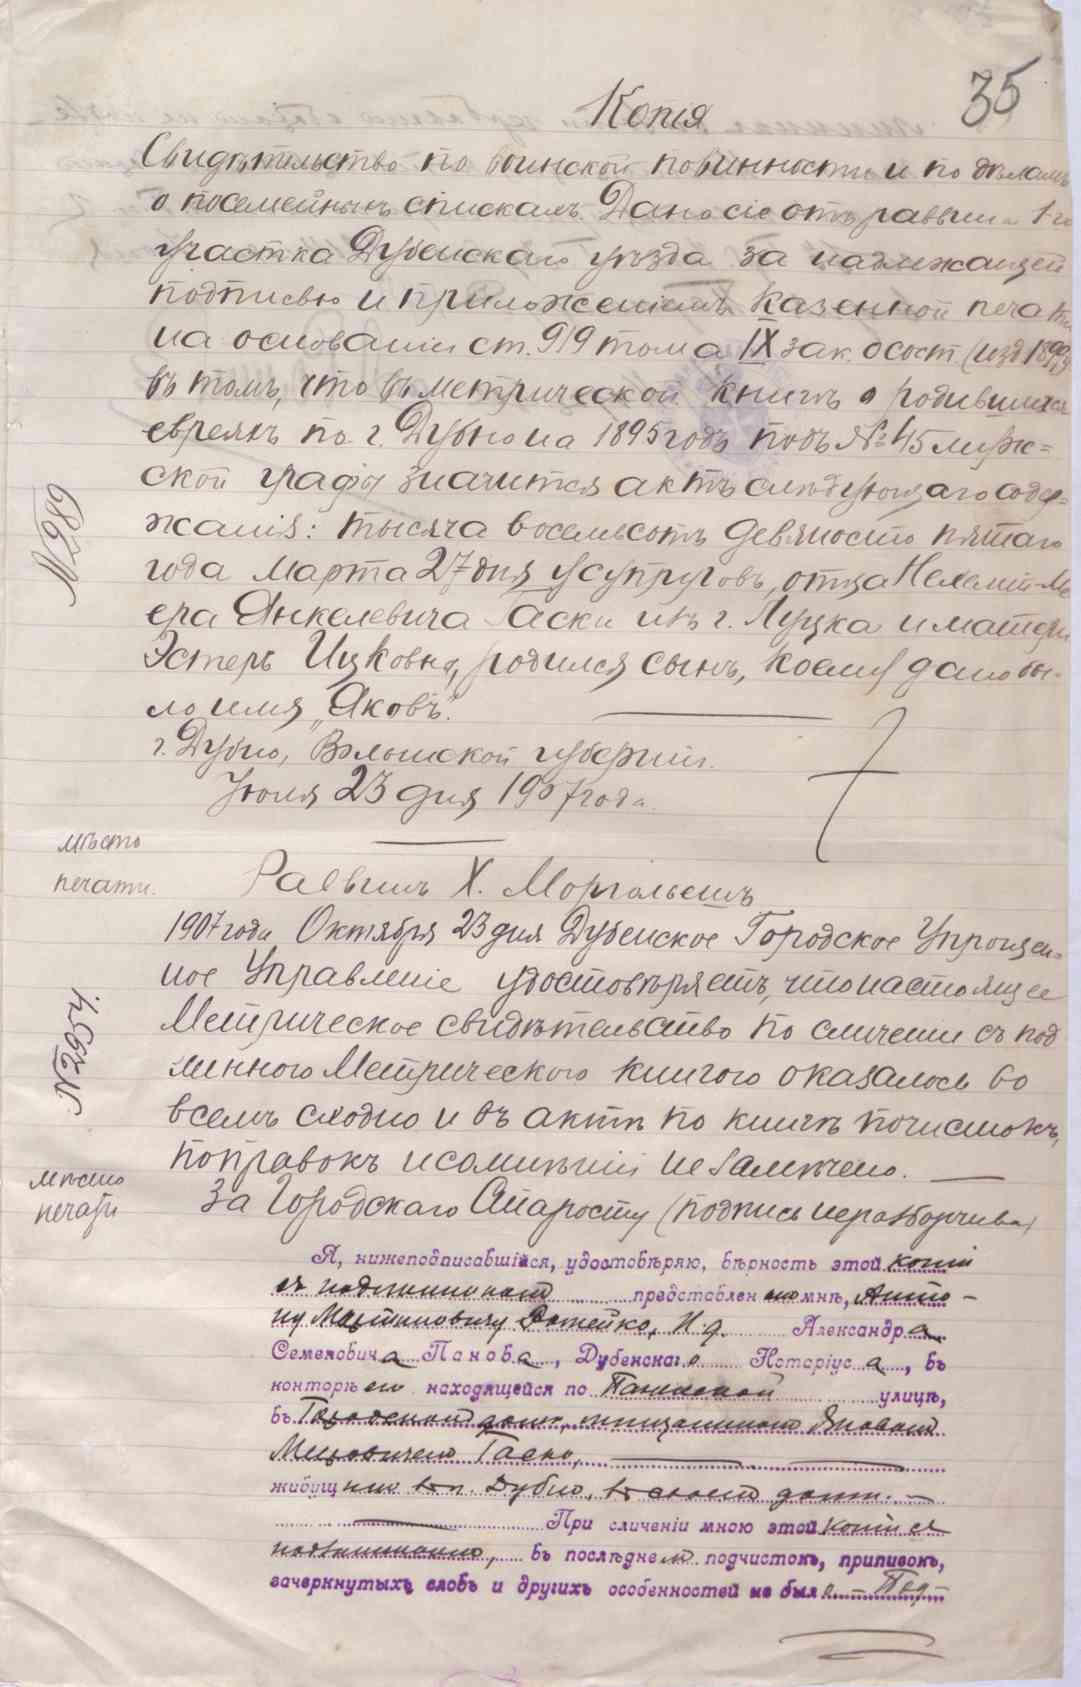 35
Копія
Свидѣтельство по воинской повинности и по дѣламъ
о посемейнымъ спискамъ. Дано сіе отъ раввина 1-го
участка Дубенскаго уѣзда за надлежащей
подписью и приложеніемъ казенной печати
на основаніи ст. 919 тома IX зак. о сост (изд 1899
въ томъ, что въ метрической книгѣ о родившихся
евреяхъ по г. Дубно на 1895 годъ подъ № 45 муж=
ской графы значится актъ слѣдующаго содер=
жанія: тысяча восемьсотъ девяносто пятаго
года Марта 27 дня у супруговъ, отца Нехемій-Ме
ера Янкелевича Гаски изъ г. Луцка и матери
Эстеръ Ицковна, родился сынъ, коему дано бы-
ло имя „Яковъ".
г. Дубно, Волынской губерніи.
Іюля 23 дня 1907 года.
№ 289
мѣсто
печати.
Раввинъ Х. Моргальетъ
1907 года Октября 23 дня Дубенское Городское Упрощен=
ное Управленіе удостовѣряетъ, что настоящее
Метрическое свидѣтельство по сличеніи съ под
линного Метрического книгою оказалось во
всемъ сходно и въ актѣ по книгѣ почистокъ,
поправокъ и сомнѣній не замѣчено.
№ 2954.
мѣсто
печати
За Городскаго Старосту (подпись неразборчива)
Я, нижеподписавшійся, удостовѣряю, вѣрность этой копіи
съ подлинникомъ представленною мнѣ, Анто-
ну Мартиновичу Домейко, И.д. Александра
Семеновича Панова, Дубенскаго Нотаріуса, въ
конторѣ его находящейся по улицѣ,
въ домѣ, мѣщаниномъ Яковомъ
Гаско,
живущимъ въ г. Дубно, въ своемъ домѣ.
При сличеніи мною этой копіи съ
подлинникомъ, въ послѣднемъ подчистокъ, приписокъ,
зачеркнутыхъ словъ и другихъ особенностей не было.